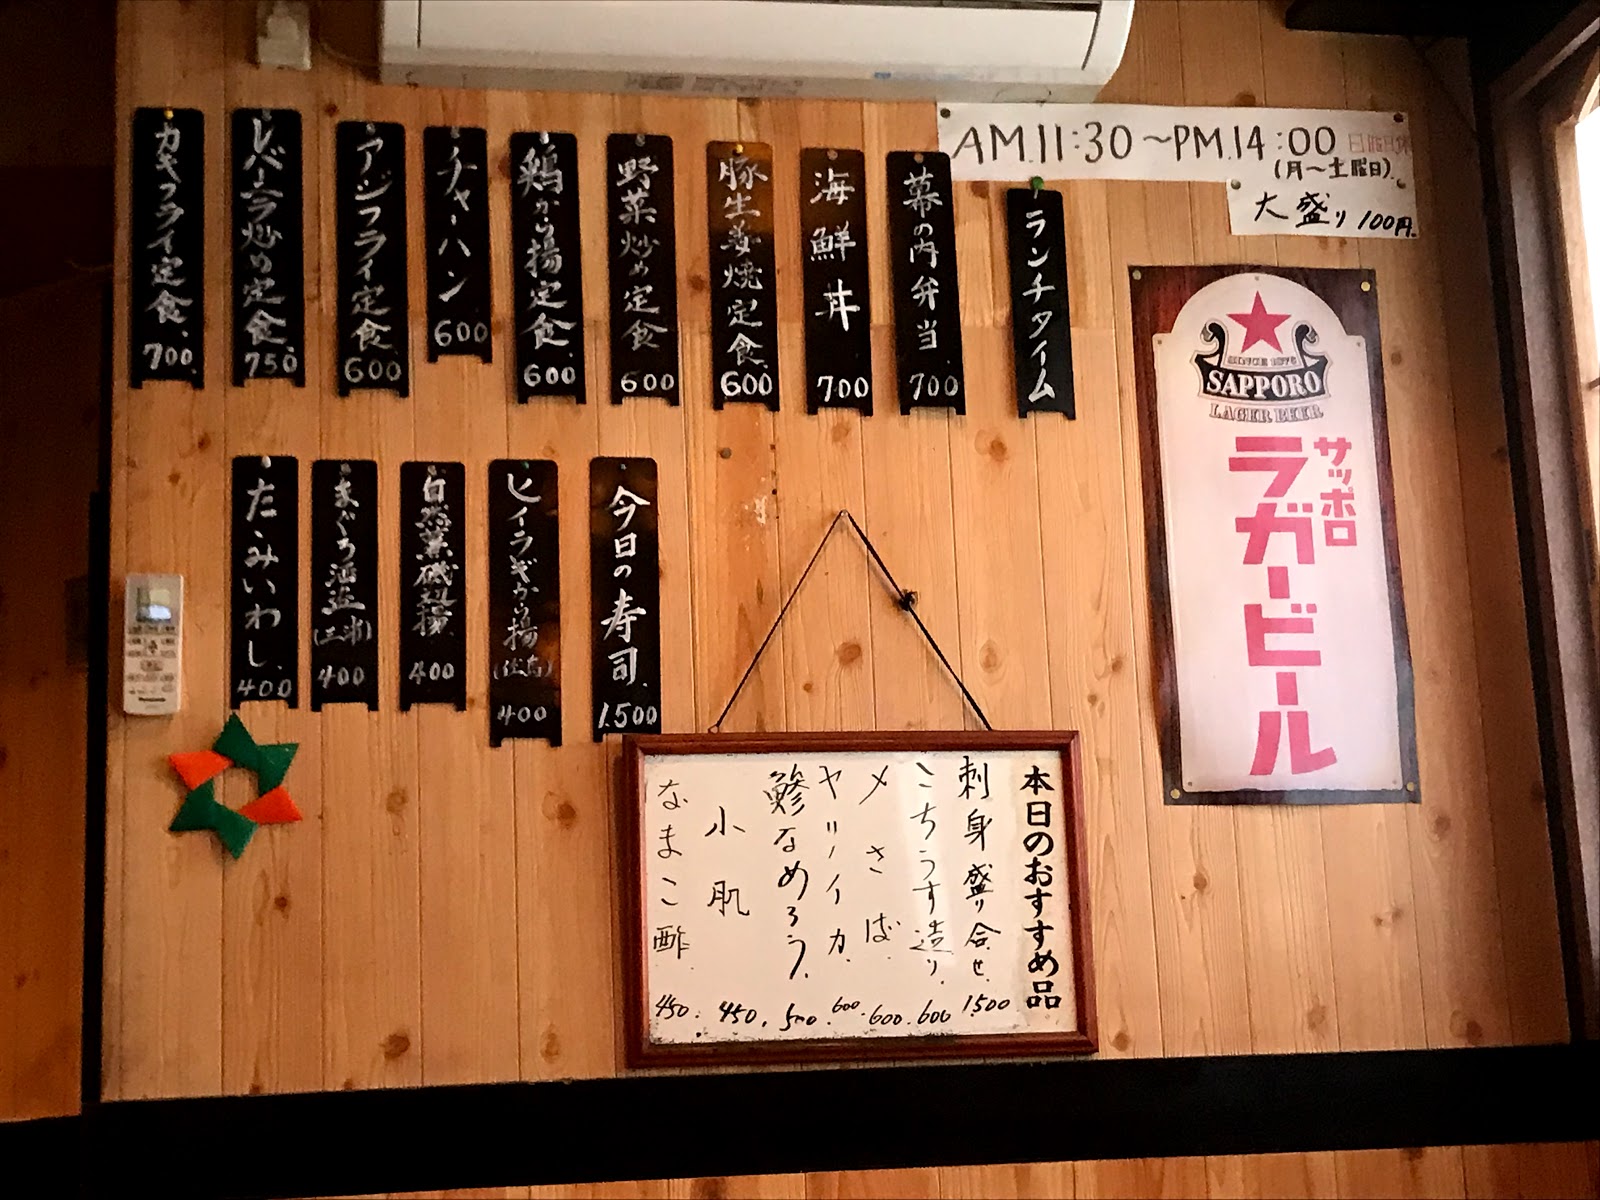 AM.11:30～PM.14:00 日曜日休
(月～土曜日).
大盛り 100円.
ランチタイム
幕の内弁当 700
海鮮丼 700
豚生姜焼定食 600
野菜炒め定食 600
鶏から揚定食 600
チャーハン 600
アジフライ定食 600
レバーニラ炒め定食 750
カキフライ定食 700
SINCE 1876
SAPPORO
LAGER BEER
サッポロ
ラガービール
今日の寿司 1.500
ヒイラギから揚 400
自然薯磯辺揚 400
まぐろ酒盗 400
たゝみいわし 400
本日のおすすめ品
刺身盛り合せ 1.500
こちうす造り 600
〆さば 600
ヤリイカ 600
鯵なめろう 500
小肌 450
なまこ酢 450
Panasonic